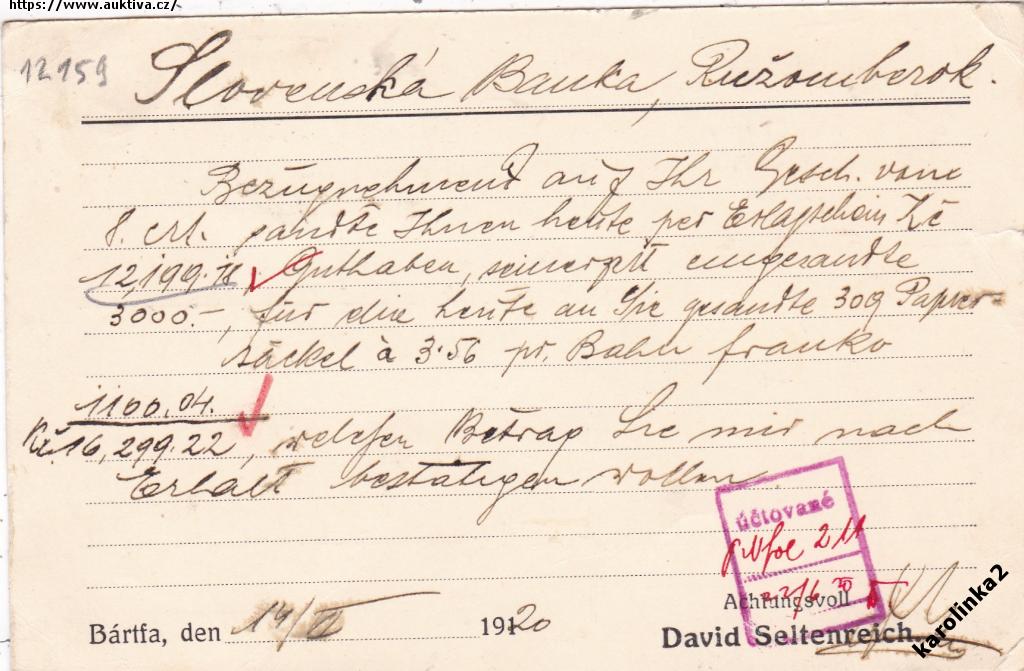 https://www.auktiva.cz/
12159
Slovenská Banka, Ružomberok.
Bezugnehmend auf Ihr Gesch. vom
8. crt. sandte Ihnen heute per Erlagschein Kč
12,199.18, Guthaben, seinerzeit eingesandte
3000.-, für die heute an Sie gesandte 309 Papier-
säckel à 3.56 pr. Bahn franko
1100.04.
Kč 16,299.22, welchen Betrag Sie mir nach
Erhalt bestätigen wollen
účtované
211
22/6 20
Achtungsvoll
Bártfa, den 14/ 1920
David Seltenreich.
karolinka2